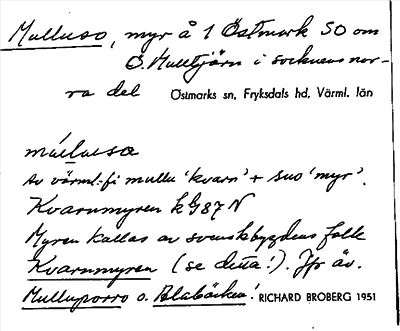 Mulluso, myr å 1 Östmark SO om
Ö. Mulltjärn i socknens nor-
ra del Östmarks sn, Fryksdals hd, Värml. län
Av värml.-fi mullu 'kvarn' + suo 'myr'.
Kvarnmyren k G87 N
Myren kallas av svenskbygdens folk
Kvarnmyren (se detta!). Jfr äv.
Mulluporro o. Blabäcken! RICHARD BROBERG 1951